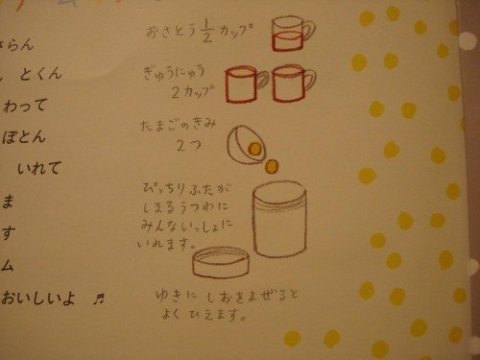 さらん
とくん
わって
ぽとん
いれて
ま
す
ム
おいしいよ ♬
おさとう 1/2 カップ
ぎゅうにゅう
2カップ
たまごのきみ
2つ
ぴっちりふたが
しまるうつわに
みんないっしょに
いれます。
ゆきに しおをまぜると
よく ひえます。